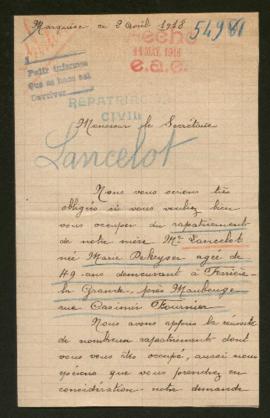 Marquise ce 2 Avril 1918
54981
14 MAI 1918
e.a.e.
REPATRI
CIVIL
Monsieur le Secrétaire
Lancelot
Nous vous serons très
obligés si vous voulez bien
vous occuper du rapatriement
de notre mère Me Lancelot
née Marie Dekeyser agée de
49 ans demeurant à Ferrière
la Grande, près Maubeuge
rue Casimir Fournier
Nous avons appris la réussite
de nombreux rapatriements dont
vous vous êtes occupé, aussi nous
espérons que vous prendrez en
considération notre demande